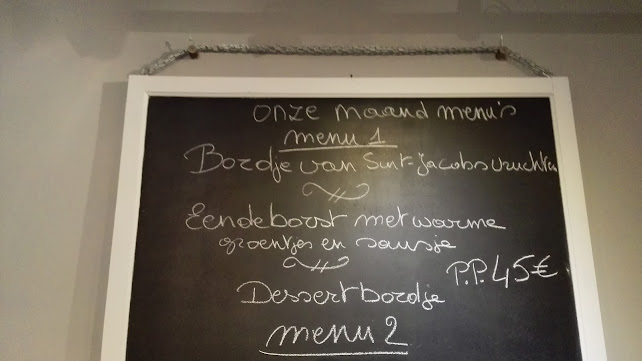 onze maand menu's
menu 1
Bordje van Sint-Jacobsvruchten
Eendeborst met warme
groentjes en sausje
P.P. 45€
Dessertbordje
menu 2